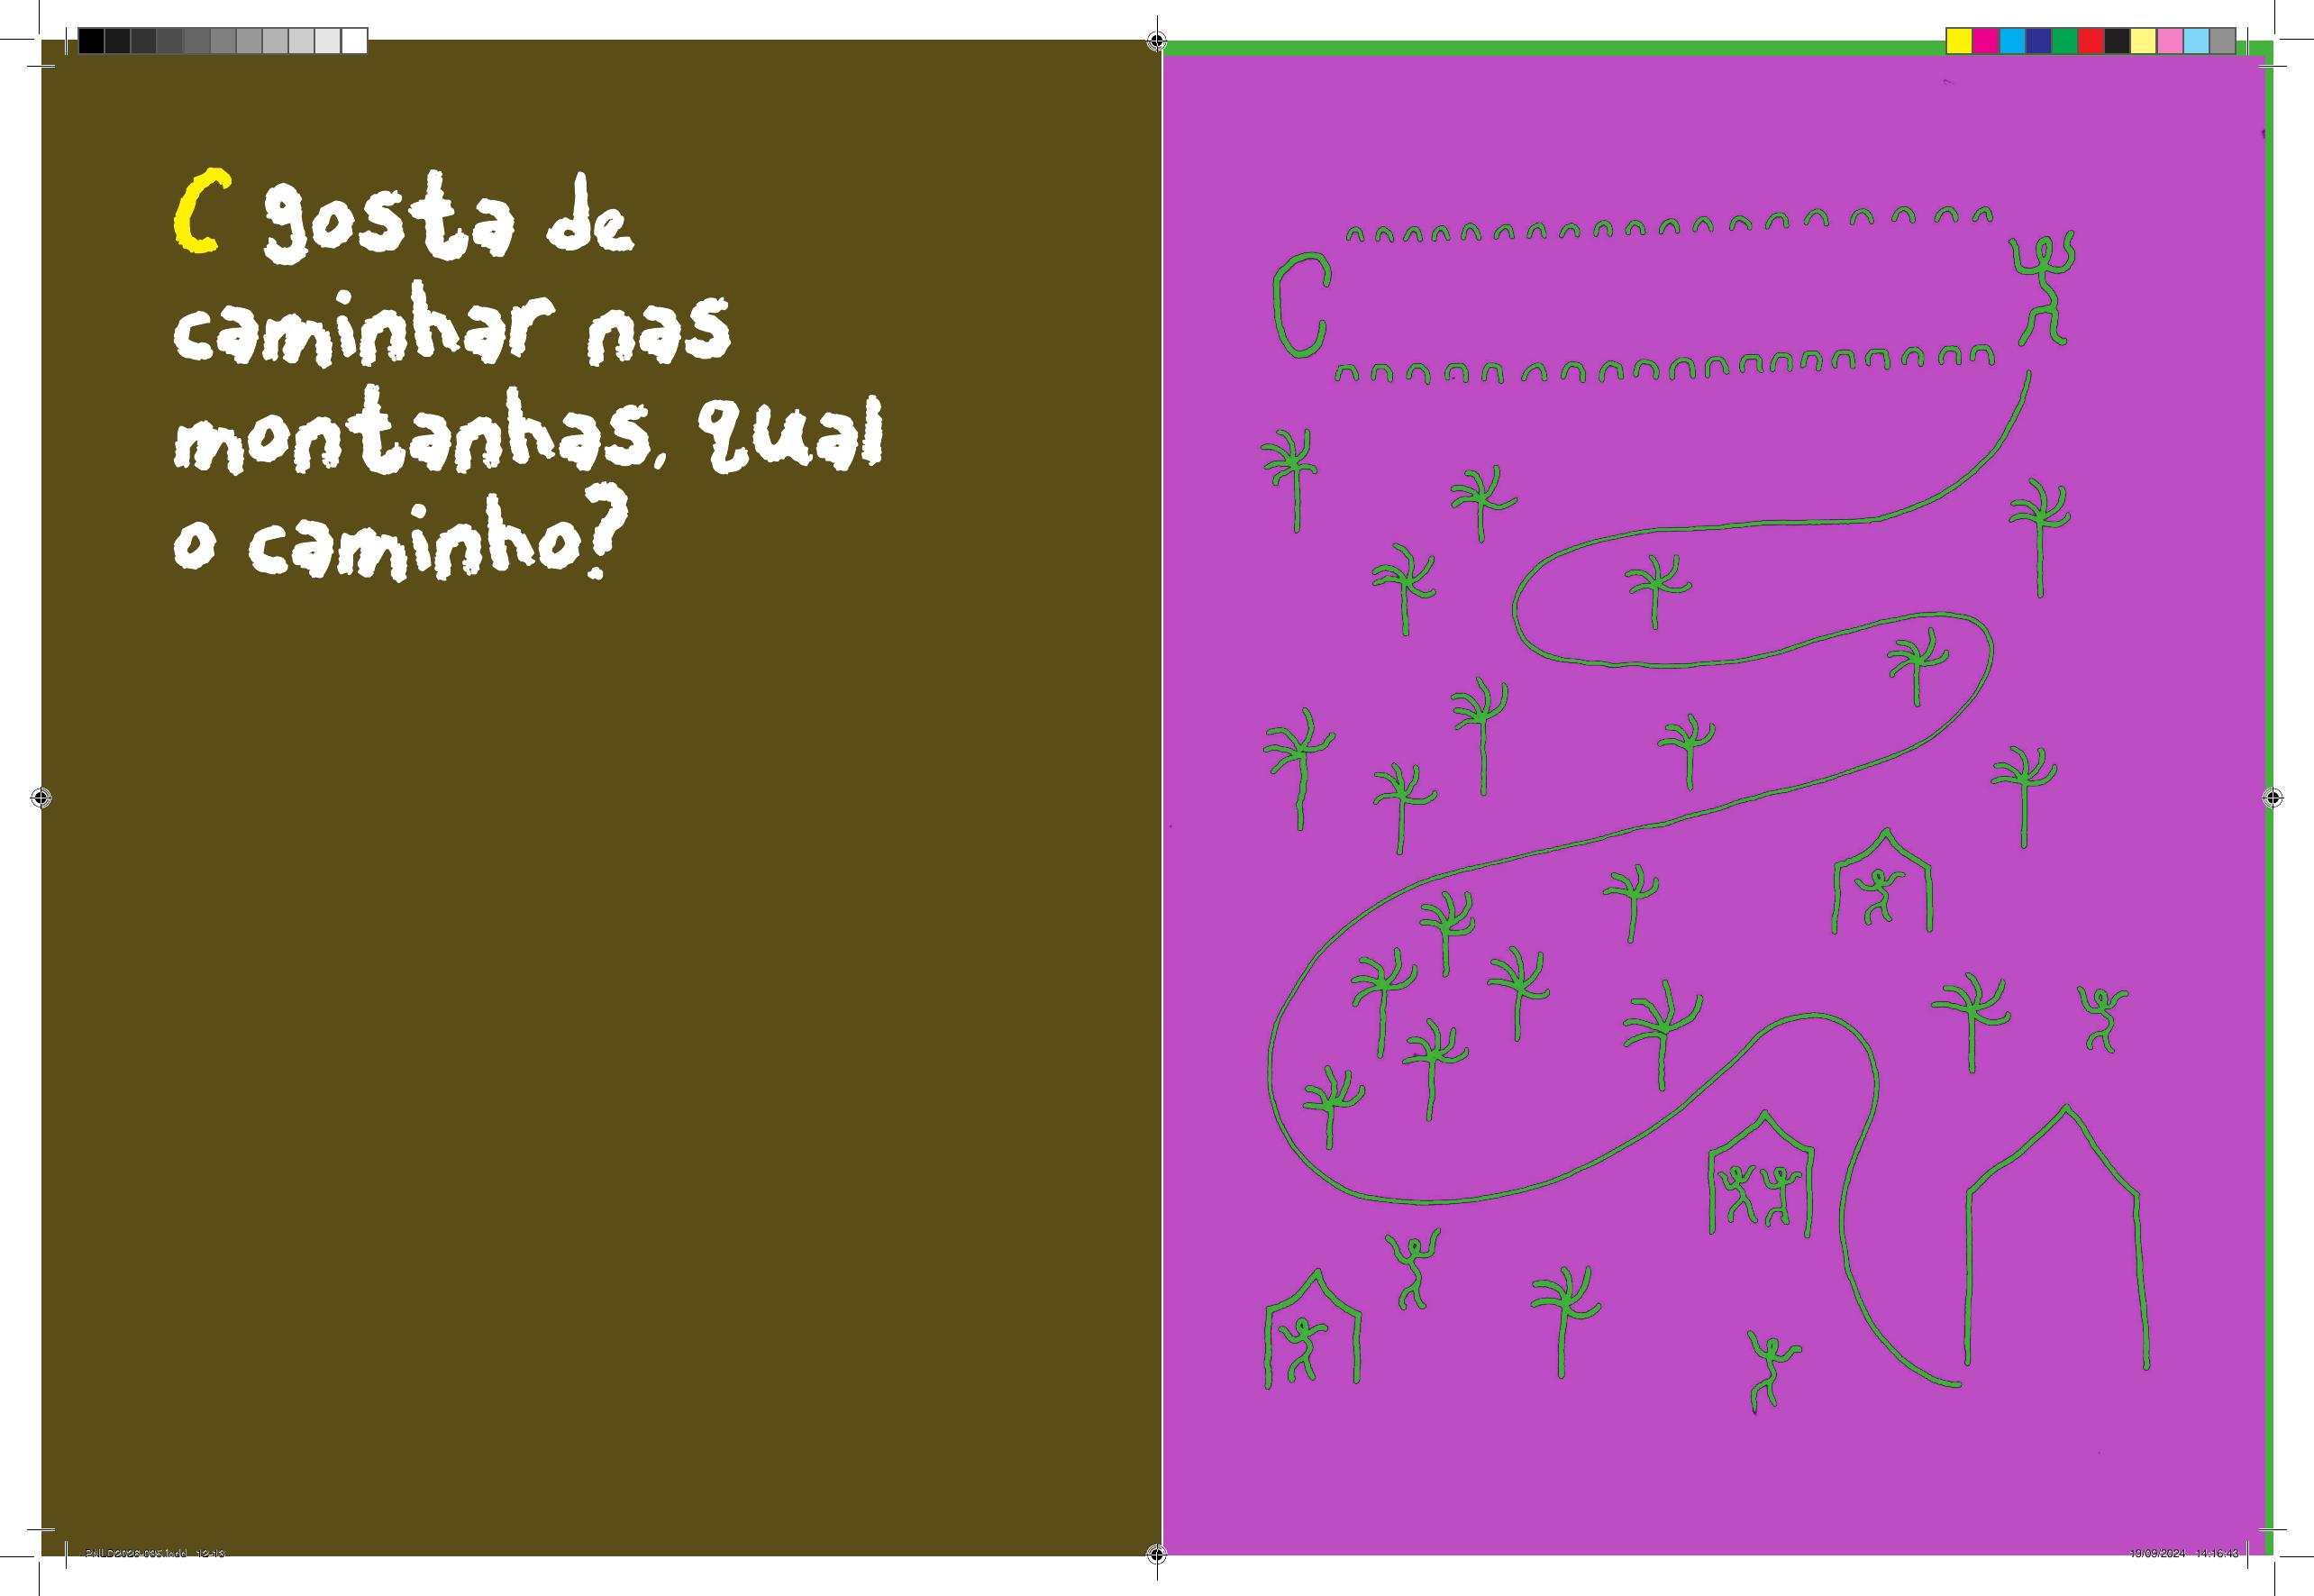 C gosta de
caminhar nas
montanhas, qual
o caminho?
C
PNLD2026-035.indd   12-13
19/09/2024   14:16:43